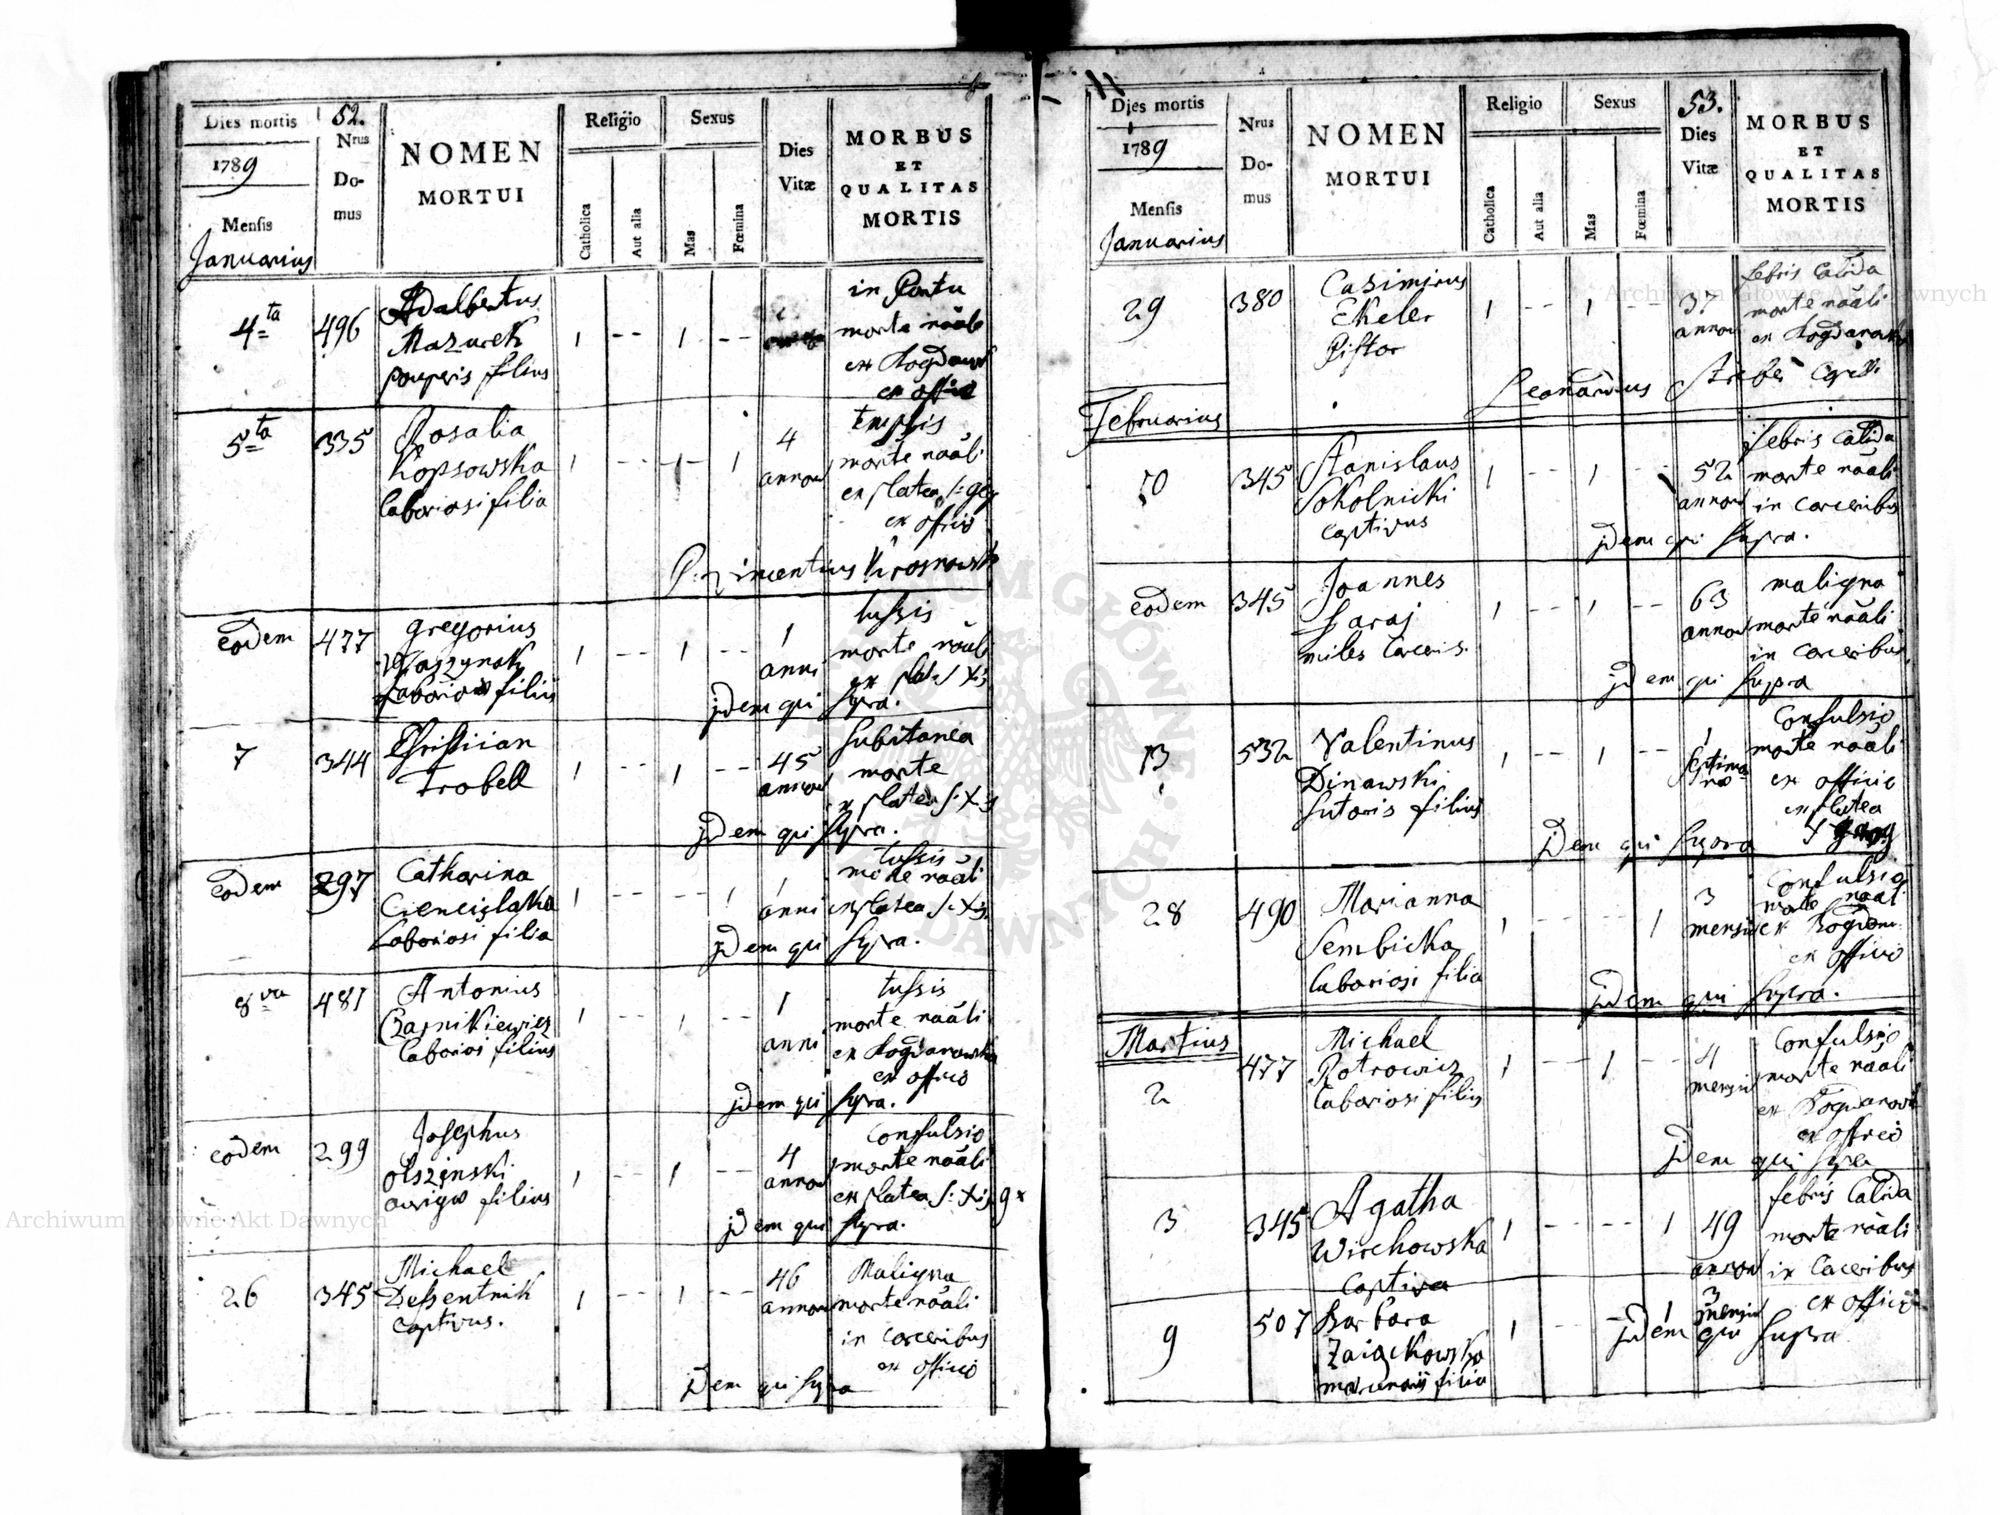 52.
Dies mortis
1789
Mensis
Januarius
Nrus
Do-
mus
NOMEN
MORTUI
Religio
Catholica
Aut alia
Sexus
Mas
Fœmina
Dies
Vitæ
MORBUS
ET
QUALITAS
MORTIS
4ta 496 Adalbertus
Mazurek
pauperis filius
1 -- 1 --
in Partu
morte nãali
ex officio
5ta 335 Rosalia
Kopsowska
laboriosi filia
1 -- 1
4
annor
morte nãali
ex platea
ex officio
eodem 477 Gregorius
laboriosi filius
1 -- 1 --
1
anni
tussis
morte nãali
Jdem qui supra.
7 344 Christiian
Trobell
1 -- 1 --
45
annor
subitanea
morte
ex platea
Jdem qui supra.
eodem 297 Catharina
Laboriosi filia
1 -- -- 1
1
anni
tussis
morte nãali
ex platea
Jdem qui supra.
8va 481 Antonius
Czajnikiewicz
laboriosi filius
1 -- 1 --
1
anni
tussis
morte nãali
ex Bogdanowka
ex officio
Jdem qui supra.
eodem 299 Josephus
Olszenski
aurigae filius
1 -- 1 --
4
annor
Confulsio
morte nãali
ex platea
Jdem qui supra.
26 345 Michael
captivus.
1 -- 1 --
46
annor
Maligna
morte nãali
in carceribus
ex officio
Jdem qui supra
53.
Dies mortis
1789
Mensis
Januarius
Nrus
Do-
mus
NOMEN
MORTUI
Religio
Catholica
Aut alia
Sexus
Mas
Fœmina
Dies
Vitæ
MORBUS
ET
QUALITAS
MORTIS
29 380 Casimirus
Ekeler
Pistor
1 -- 1 -
37
annor
febris calida
morte nãali
Leonardus
Februarius
10 345 Stanislaus
Sokolnicki
captivus
1 -- 1 --
52
annor
febris calida
morte nãali
in carceribus
Jdem qui supra.
eodem 345 Joannes
miles carceris.
1 -- 1 --
63
annor
maligna
morte nãali
in carceribus
Jdem qui supra
13 532 Valentinus
Dinawski
sutoris filius
1 -- 1 --
1
Confulsio
morte nãali
ex officio
ex platea
Jdem qui supra
28 490 Marianna
Sembicka
laboriosi filia
1 -- -- 1
3
Confulsio
morte nãali
ex officio
Jdem qui supra.
Martius
2 477 Michael
Rotrowicz
laboriosi filius
1 -- 1 --
4
Confulsio
morte nãali
ex officio
Jdem qui supra
3 345 Agatha
Wirchowska
captiva
1 -- -- 1
49
annor
febris calida
morte nãali
in carceribus
ex officio
9 507 Barbara
Zaiackowska
mercenarii filia
1 -- -- 1
3
Jdem qui supra
Archiwum Główne Akt Dawnych
Archiwum Główne Akt Dawnych